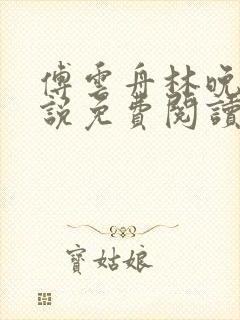 傅雲舟林晚
說免費閱讀
寶姑娘